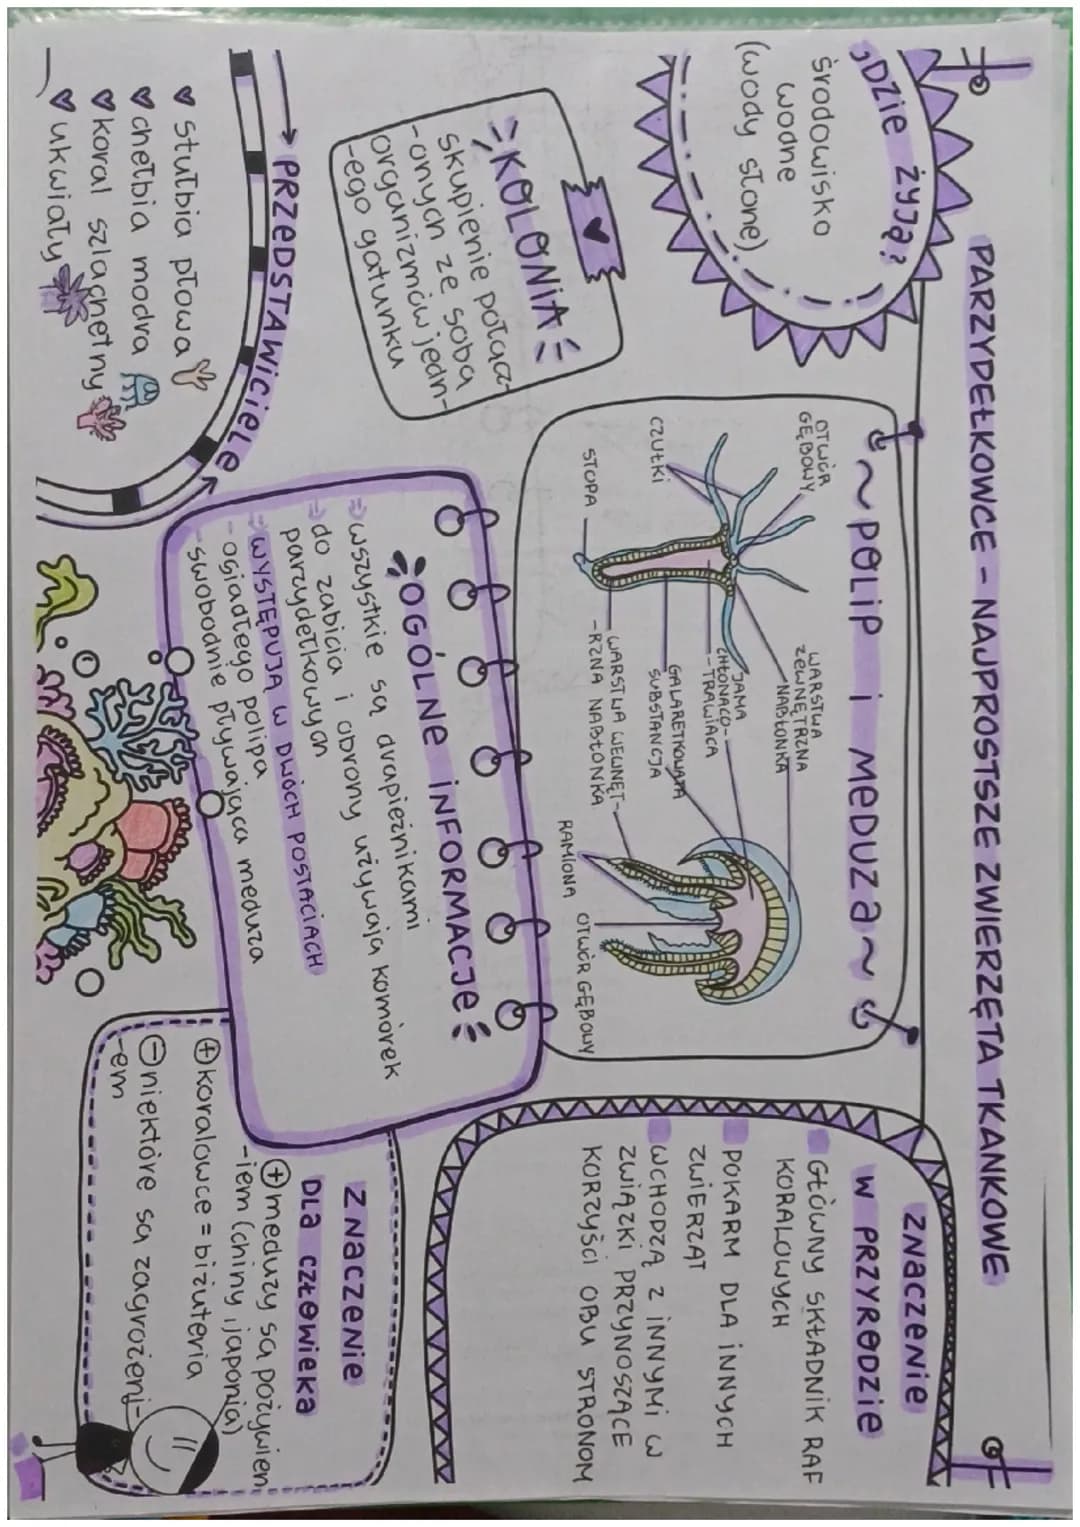 PARZYDEŁKOWCE - NAJPROSTSZE ZWIERZĘTA TKANKOWE
GDZIE ŻYJĄ?
środowisko
wodne
(wody słone)
KOLONIA
skupienie połącz-
-onych ze sobą
organizmów jedn-
-ego gatunku
→ PRZEDSTAWICIELE
stułbia płowa
chełbia modra
koral szlachetny
ukwiały
~POLIP i MEDUZA~
OTWÓR
GĘBOWY
CZUŁKI
STOPA
WARSTWA
ZEWNĘTRZNA
NABŁONKA
JAMA
CHŁONĄCO-
-TRAWIĄCA
GALARETKOWATA
SUBSTANCJA
WARSTWA WEWNĘT-
-RZNA NABŁONKA
RAMIONA
OTWÓR GĘBOWY
OGÓLNE INFORMACJE
⇒ wszystkie są drapieżnikami
⇒ do zabicia i obrony używają komórek
parzydełkowych
⇒ WYSTĘPUJĄ W DWÓCH POSTACIACH
- osiadłego polipa
- swobodnie pływająca meduza
ZNACZENIE
W PRZYRODZIE
GŁÓWNY SKŁADNIK RAF
KORALOWYCH
POKARM DLA INNYCH
ZWIERZĄT
WCHODZĄ Z INNYMI W
ZWIĄZKI PRZYNOSZĄCE
KORZYŚCI OBU STRONOM
ZNACZENIE
DLA CZŁOWIEKA
⊕ meduzy są pożywien
-iem (chiny i japonia)
⊕ koralowce = biżuteria
⊖ niektóre są zagrożeni-
-em